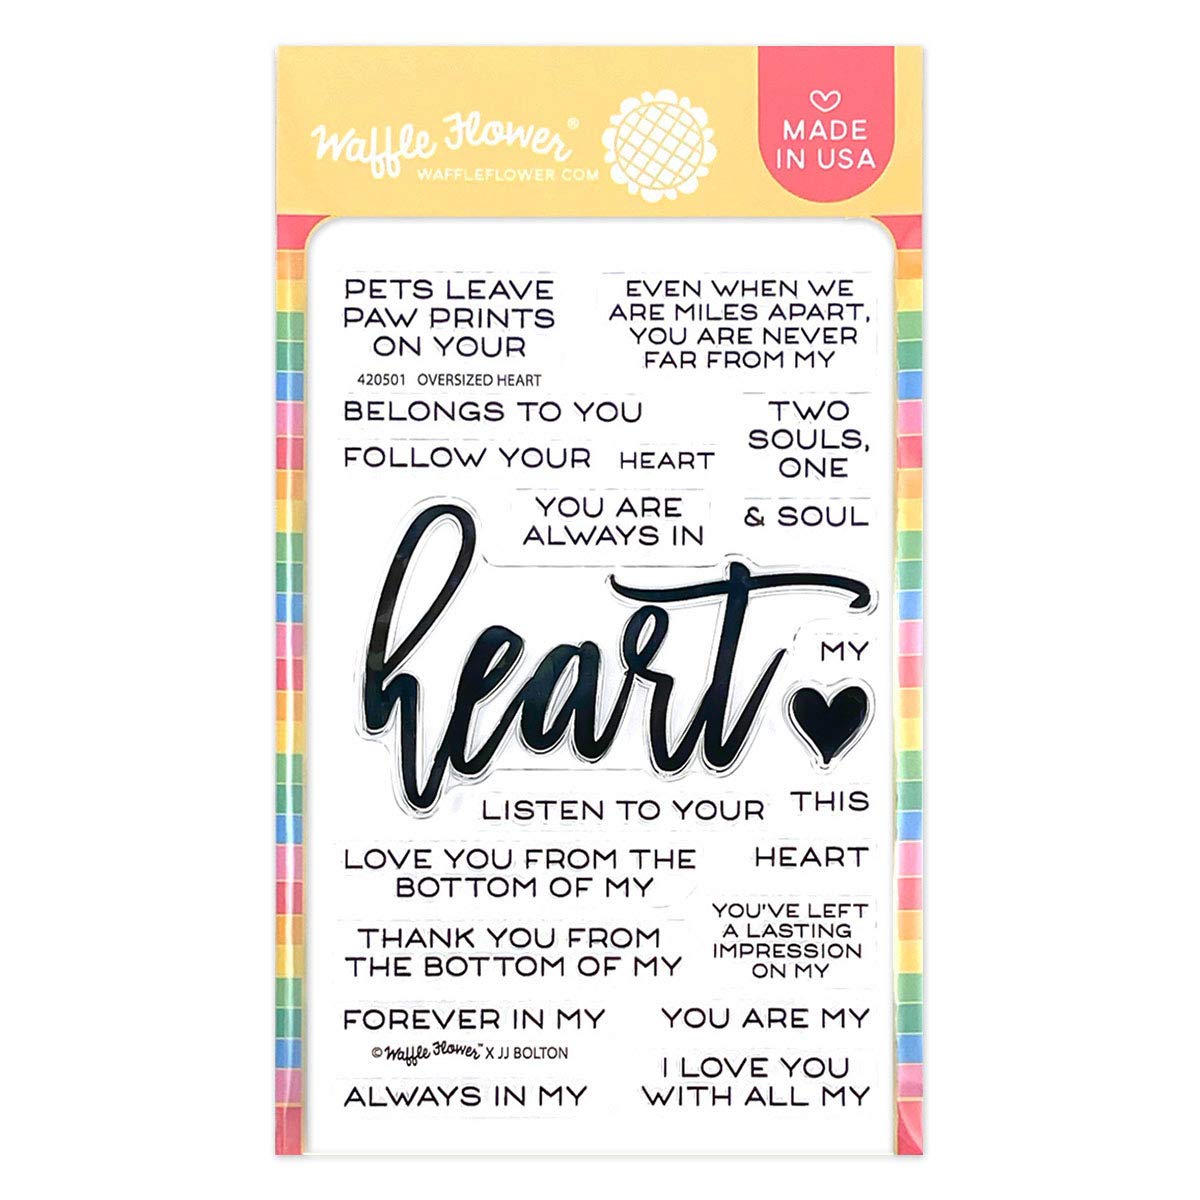 Waffle Flower®
WAFFLEFLOWER.COM
MADE
IN USA
PETS LEAVE
PAW PRINTS
ON YOUR
420501 OVERSIZED HEART
EVEN WHEN WE
ARE MILES APART,
YOU ARE NEVER
FAR FROM MY
BELONGS TO YOU
TWO
SOULS,
ONE
FOLLOW YOUR
HEART
YOU ARE
ALWAYS IN
& SOUL
heart
MY
LISTEN TO YOUR
THIS
LOVE YOU FROM THE
BOTTOM OF MY
HEART
YOU'VE LEFT
A LASTING
IMPRESSION
ON MY
THANK YOU FROM
THE BOTTOM OF MY
FOREVER IN MY
YOU ARE MY
© Waffle Flower™ X JJ BOLTON
ALWAYS IN MY
I LOVE YOU
WITH ALL MY